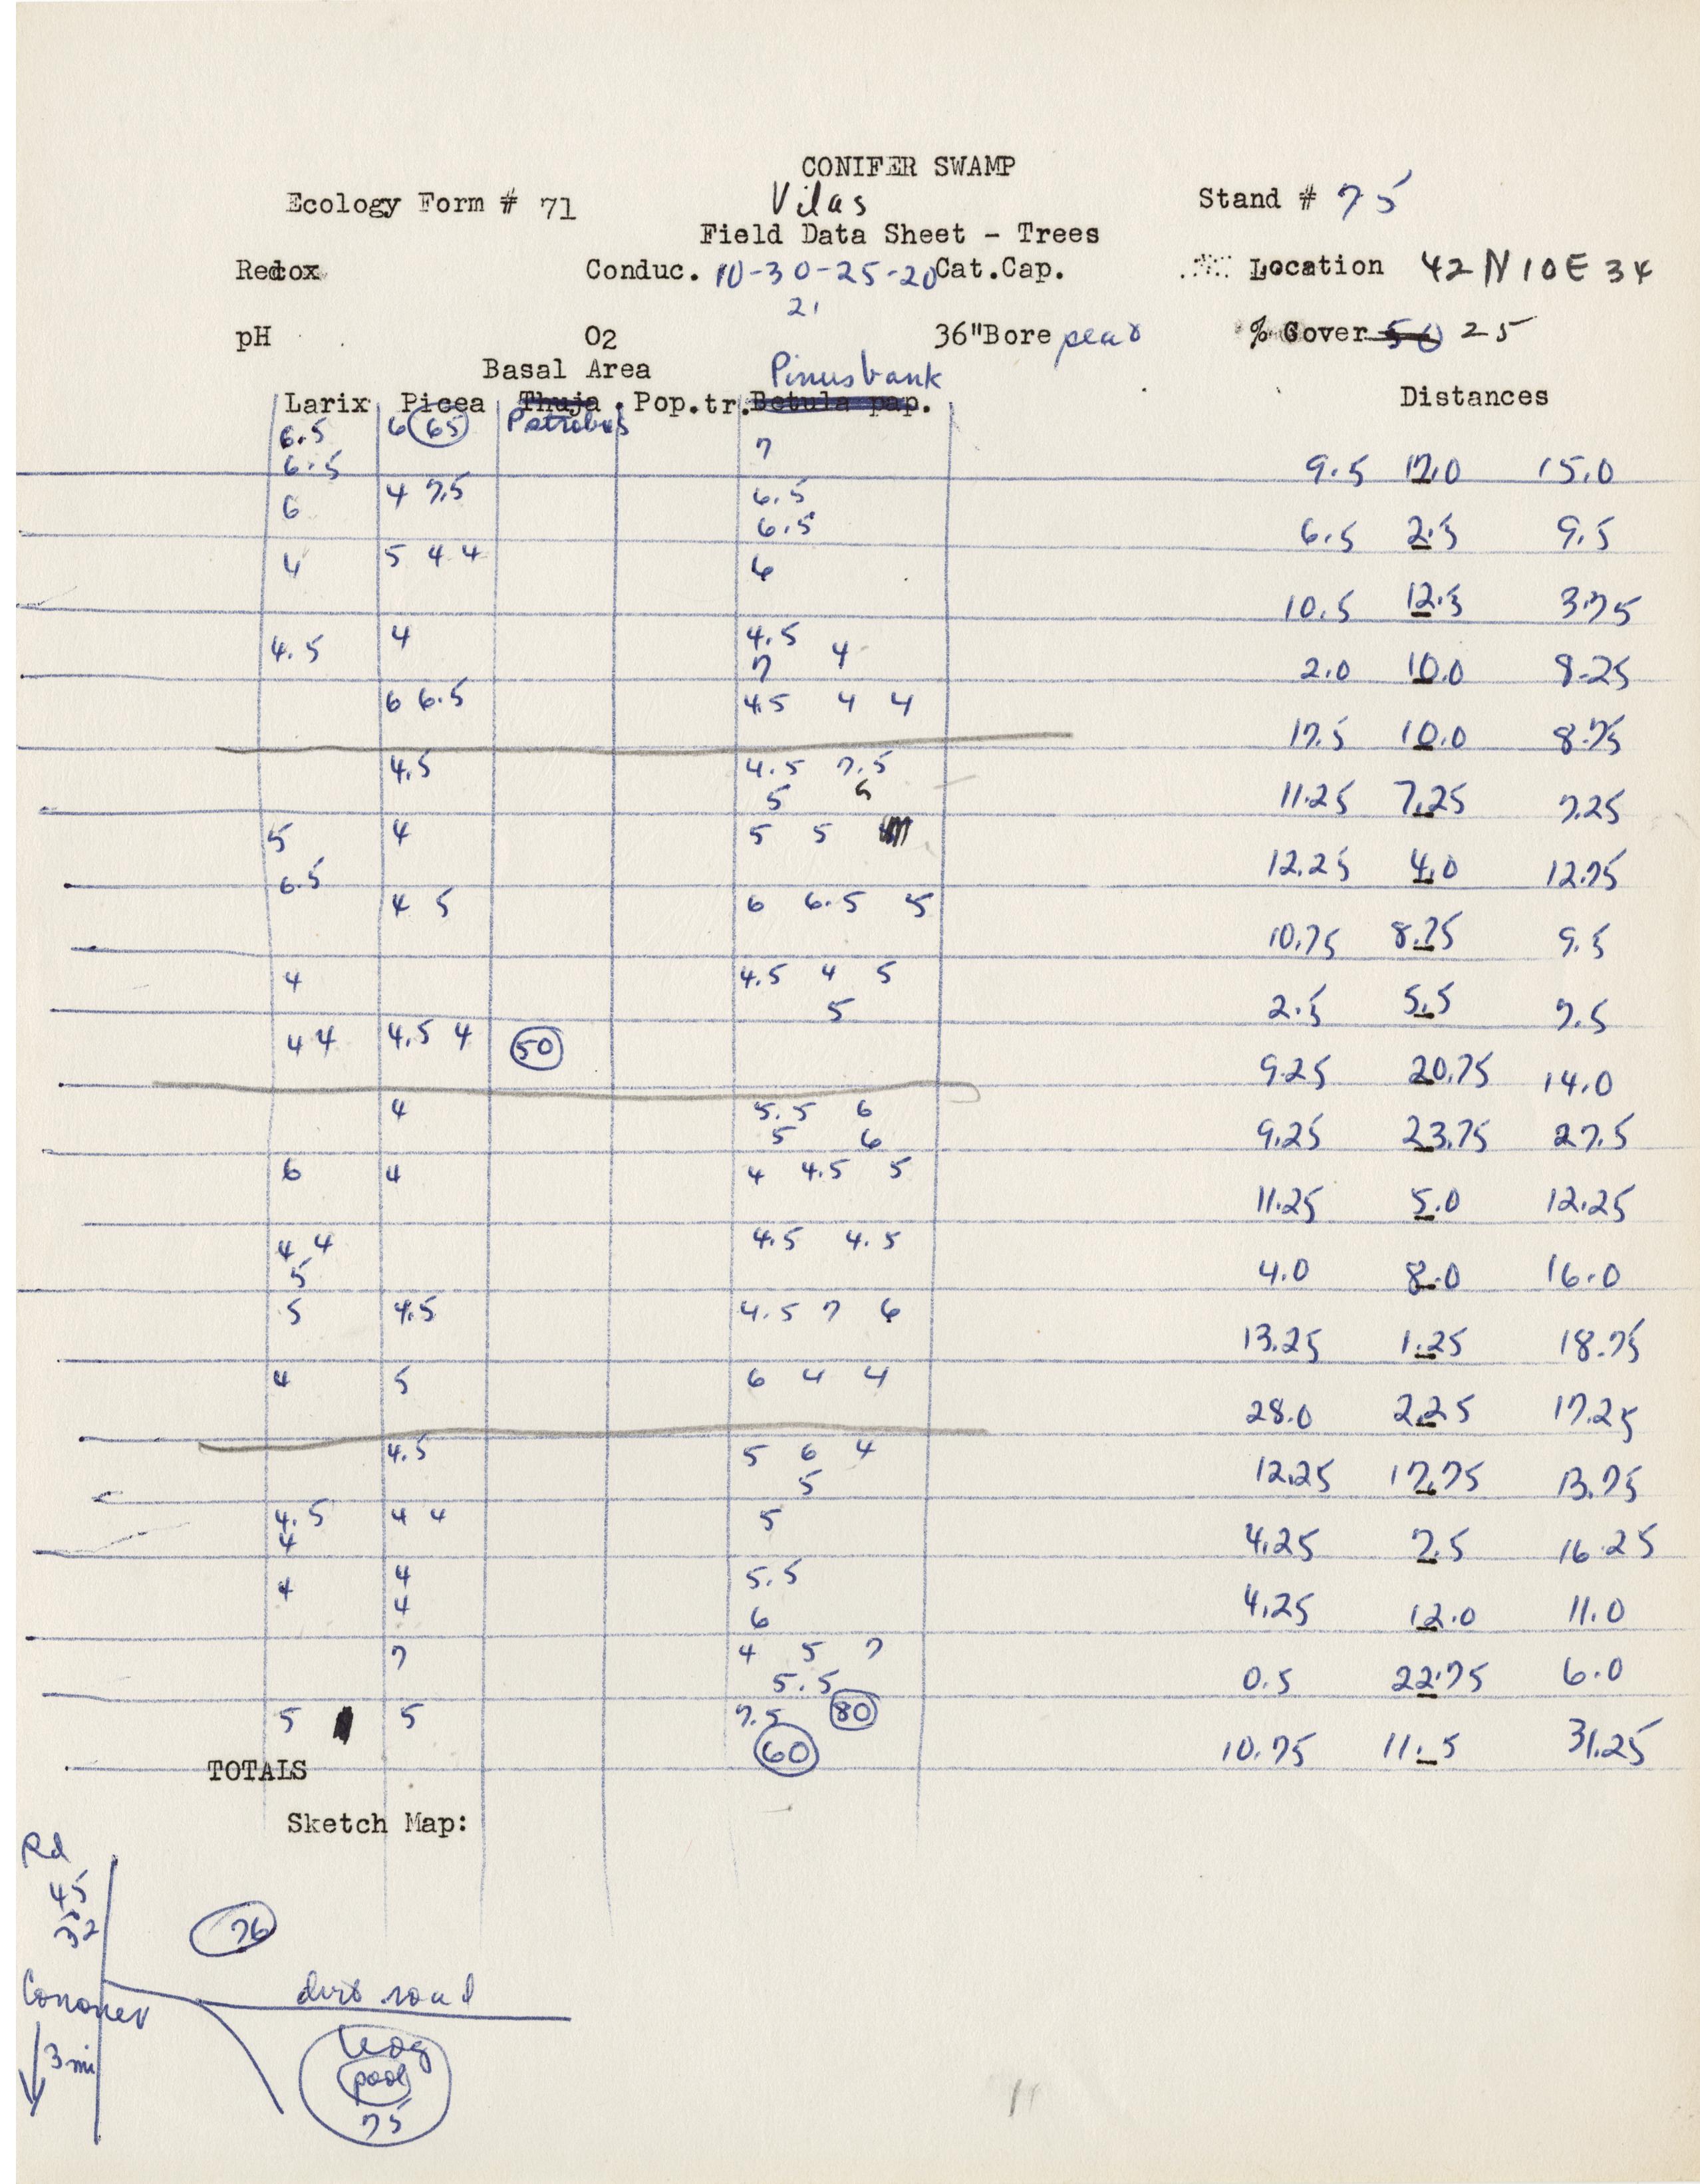 CONIFER SWAMP
Ecology Form # 71 Vilas Stand # 75
Field Data Sheet - Trees
Redox Conduc. 10-30-25-20 Cat.Cap. Location 42N10E34
21
pH O2 36"Bore peat % Cover 50 25
Basal Area Pinus bank
Larix Picea Thuja Pop.tr. Betula pap. Distances
6.5 6 65 P strobus 7
6.5 9.5 17.0 15.0
6 4 7.5 6.5
6.5 6.5 2.5 9.5
4 5 4 4 6
10.5 12.5 3.75
4.5 4 4.5 4
7 2.0 10.0 8.25
6 6.5 4.5 4 4
17.5 10.0 8.75
4.5 4.5 7.5
5 5 11.25 7.25 7.25
5 4 5 5
6.5 12.25 4.0 12.75
4 5 6 6.5 5
10.75 8.75 9.5
4 4.5 4 5
5 2.5 5.5 7.5
4 4 4.5 4 50
9.25 20.75 14.0
4 5.5 6
5 6 9.25 23.75 27.5
6 4 4 4.5 5
11.25 5.0 12.25
4 4 4.5 4.5
5 4.0 8.0 16.0
5 4.5 4.5 7 6
13.25 1.25 18.75
4 5 6 4 4
28.0 2.25 17.25
4.5 5 6 4
5 12.25 17.75 13.75
4.5 4 4 5
4 4.25 7.5 16.25
4 4 5.5
4 6 4.25 12.0 11.0
7 4 5 7
5.5 0.5 22.75 6.0
5 5 7.5 80
60 10.75 11.5 31.25
TOTALS
Sketch Map:
Rd
45
32
76
Conover
dirt road
3 mi
bog
pool
75
11